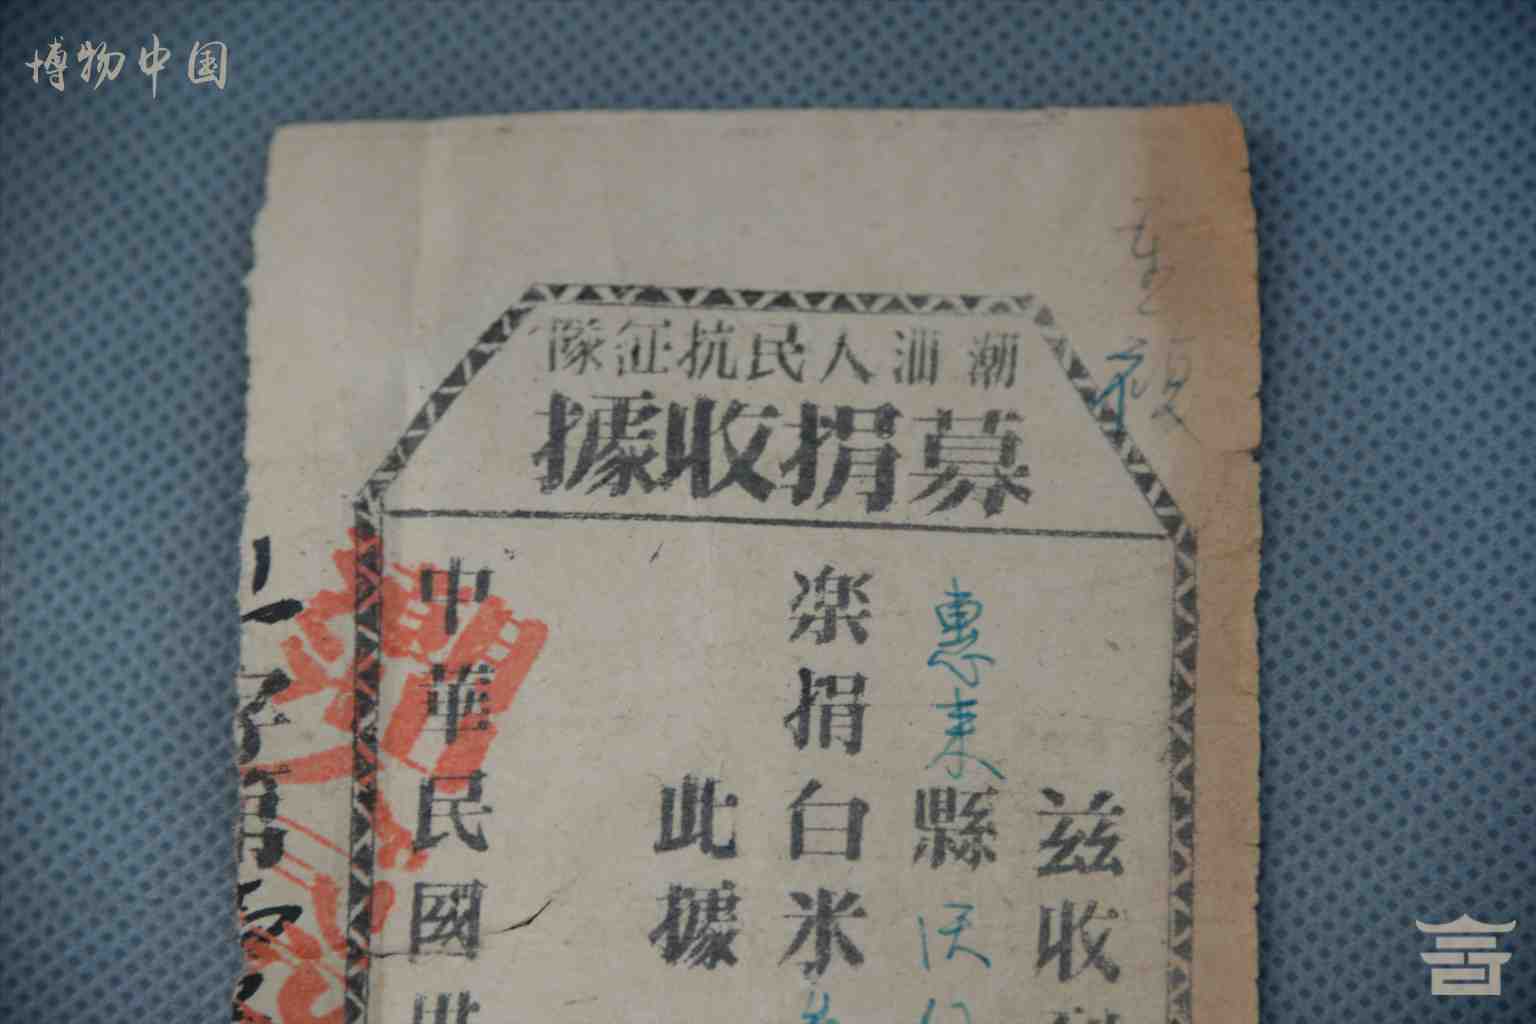 博物中国
潮汕人民抗征隊
募捐收據
兹收
惠来縣
楽捐白米
此據
中華民國